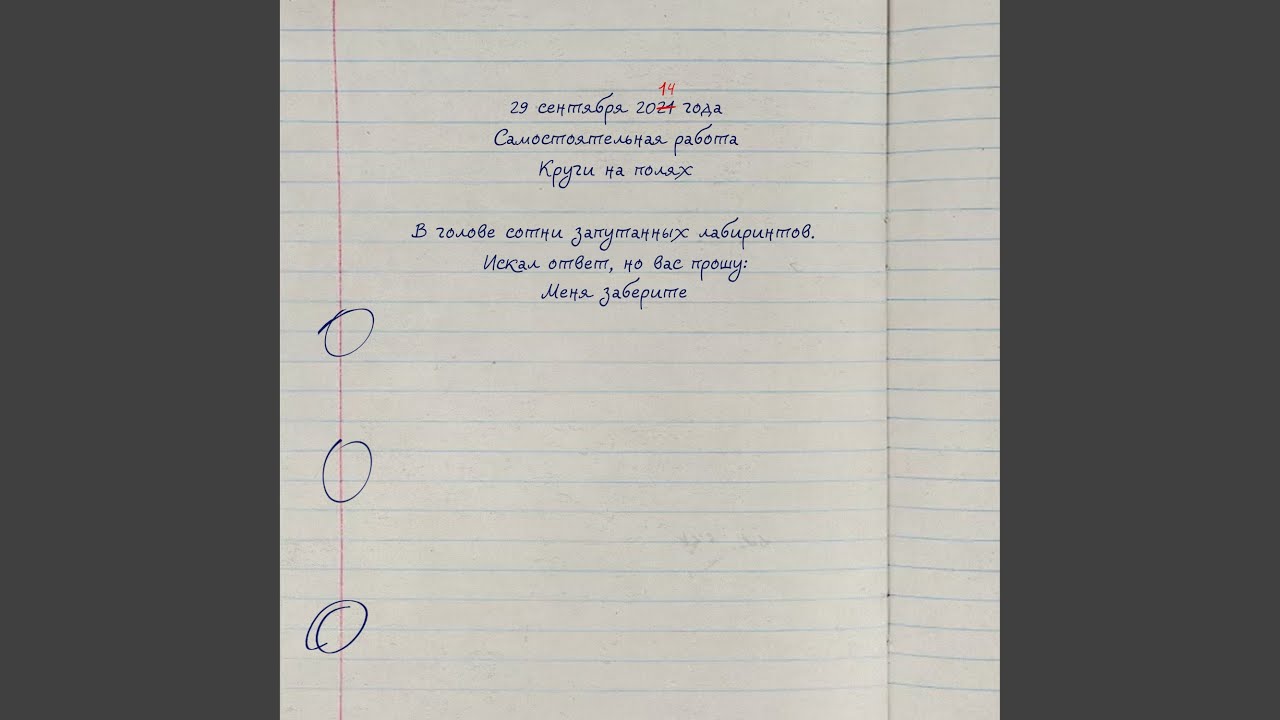 14
29 сентября 2021 года
Самостоятельная работа
Круги на полях
В голове сотни запутанных лабиринтов.
Искал ответ, но вас прошу:
Меня заберите